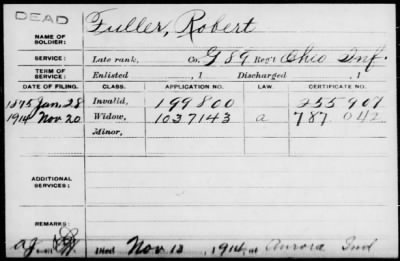 DEAD
Fuller, Robert
NAME OF SOLDIER:
SERVICE: Late rank, Co. G 89 Reg't Ohio Inf.
TERM OF SERVICE: Enlisted , 1 Discharged , 1
DATE OF FILING. CLASS. APPLICATION NO. LAW. CERTIFICATE NO.
1875 Jan. 28 Invalid, 199800 255907
1914 Nov 20 Widow, 1037143 a 787042
Minor,
ADDITIONAL SERVICES:
REMARKS:
Died Nov 13, 1914 at Aurora Ind